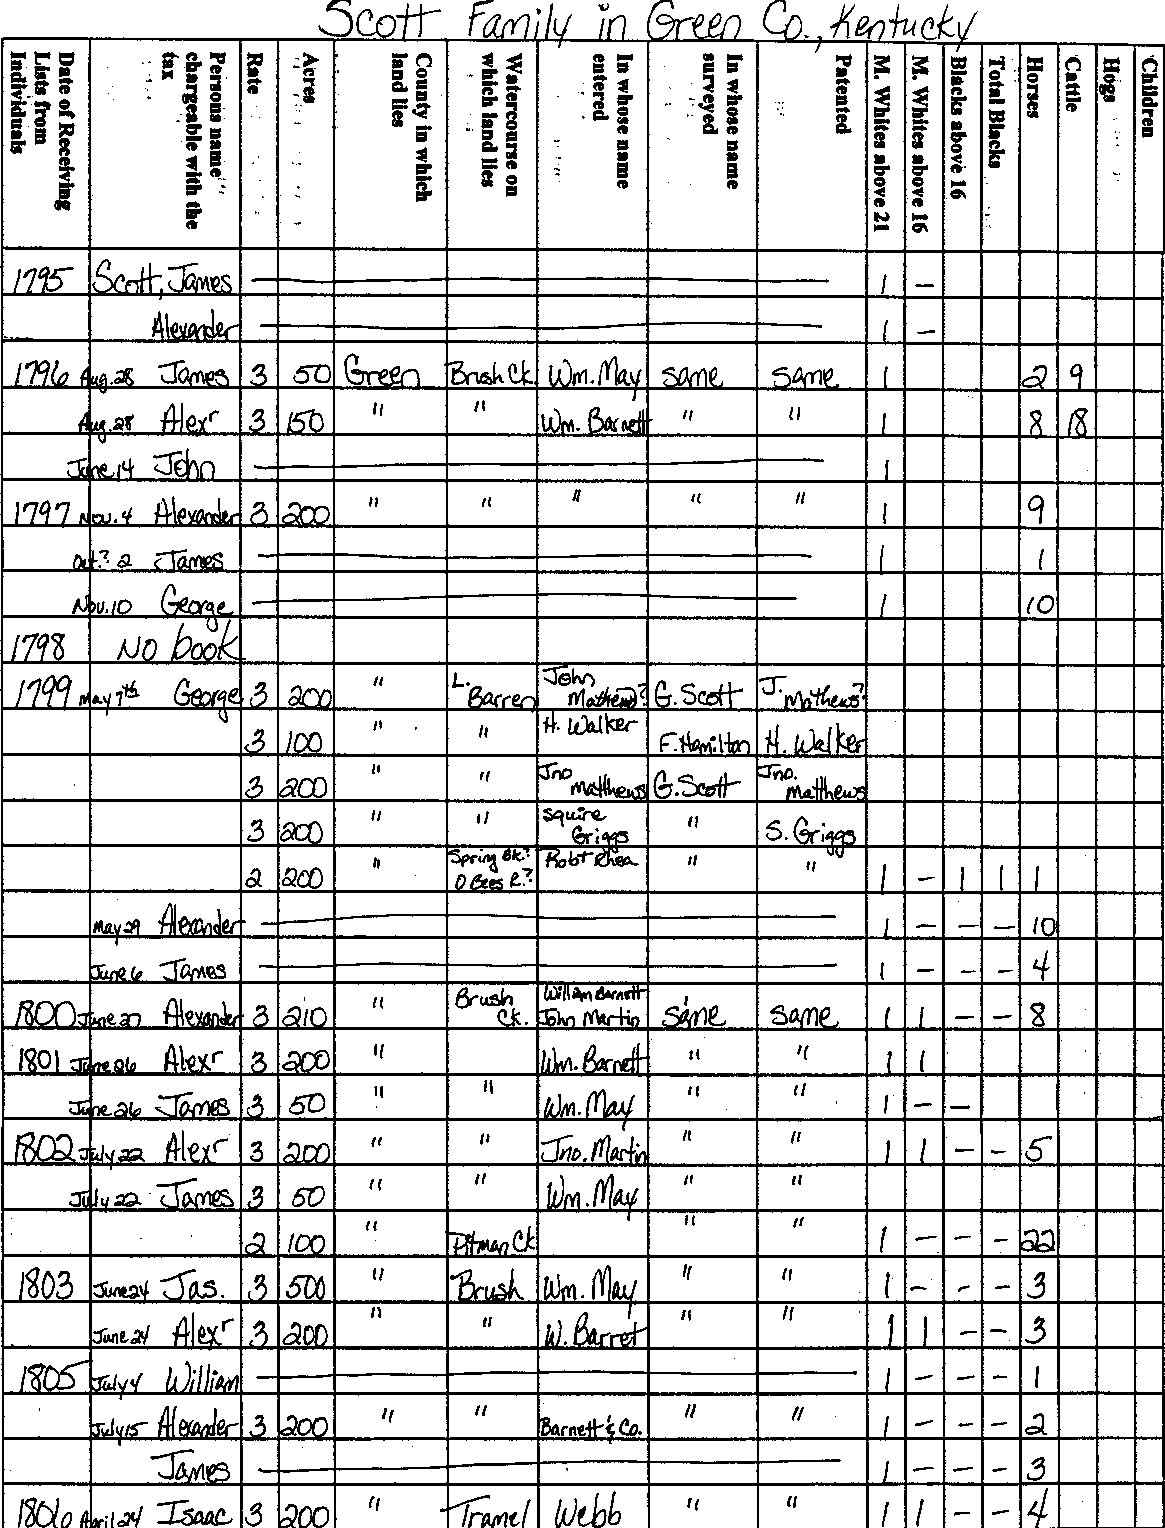 Scott Family in Green Co., Kentucky
Date of Receiving Lists from Individuals | Persons name chargeable with the tax | Rate | Acres | County in which land lies | Watercourse on which land lies | In whose name entered | In whose name surveyed | Patented | M. Whites above 21 | M. Whites above 16 | Blacks above 16 | Total Blacks | Horses | Cattle | Hogs | Children
1795 Scott, James 1 –
Alexander 1 –
1796 Aug. 28 James 3 50 Green Brush Ck. Wm. May same same 1 2 9
Aug. 28 Alexr 3 150 " " Wm. Barnett " " 1 8 18
June 14 John 1
1797 Nov. 4 Alexander 3 200 " " " " " 1 9
Oct.? 2 James 1 1
Nov. 10 George 1 10
1798 No book
1799 May 7th George 3 200 " L. Barren John Mathews? G. Scott J. Mathews?
3 100 " " H. Walker F. Hamilton H. Walker
3 200 " " Jno Matthews G. Scott Jno. Matthews
3 200 " " Squire Griggs " S. Griggs
2 200 " Spring Bk.? O Bees R.? Robt Rhea " " 1 – 1 1 1
May 29 Alexander 1 – – – 10
June 6 James 1 – – – 4
1800 June 27 Alexander 3 210 " Brush Ck. William Barnett John Martin same same 1 1 – – 8
1801 June 26 Alexr 3 200 " Wm. Barnett " " 1 1
June 26 James 3 50 " " Wm. May " " 1 – –
1802 July 22 Alexr 3 200 " " Jno. Martin " " 1 1 – – 5
July 22 James 3 50 " " Wm. May " "
2 100 " Pitman Ck " " 1 – – – 22
1803 June 24 Jas. 3 500 " Brush Wm. May " " 1 – – – 3
June 24 Alexr 3 200 " " W. Barret " " 1 1 – – 3
1805 July 4 William 1 – – – 1
July 15 Alexander 3 200 " " Barnett & Co. " " 1 – – – 2
James 1 – – – 3
1806 April 24 Isaac 3 200 " Tramel Webb " " 1 1 – – 4